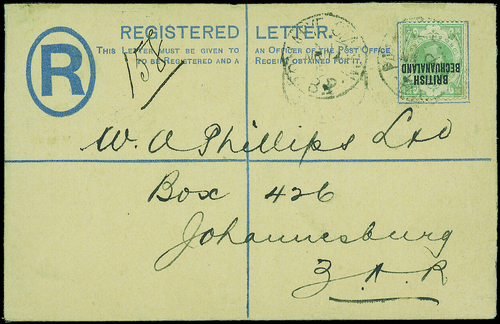 REGISTERED LETTER.
THIS LETTER MUST BE GIVEN TO AN OFFICER OF THE POST OFFICE
TO BE REGISTERED AND A RECEIPT OBTAINED FOR IT
R
158
BRITISH
BECHUANALAND
W. A Phillips Ltd
Box 426
Johannesburg
Z.A.R